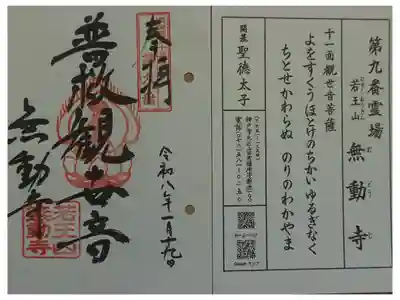 第九番霊場
若王山 無動寺
十一面観世音菩薩
よをすくうほとけのちかいゆるぎなく
ちとせかわらぬ のりのわかやま
開基 聖徳太子
奉拝
普救観世音
無動寺
令和八年一月十九日
若王山
無動寺